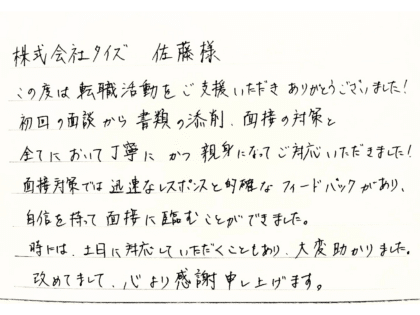 株式会社タイズ 佐藤様
この度は転職活動をご支援いただきありがとうございました!
初回の面談から書類の添削、面接の対策と
全てにおいて丁寧にかつ親身になってご対応いただきました!
面接対策では迅速なレスポンスと的確なフィードバックがあり、
自信を持って面接に臨むことができました。
時には、土日に対応していただくこともあり、大変助かりました。
改めてまして、心より感謝申し上げます。